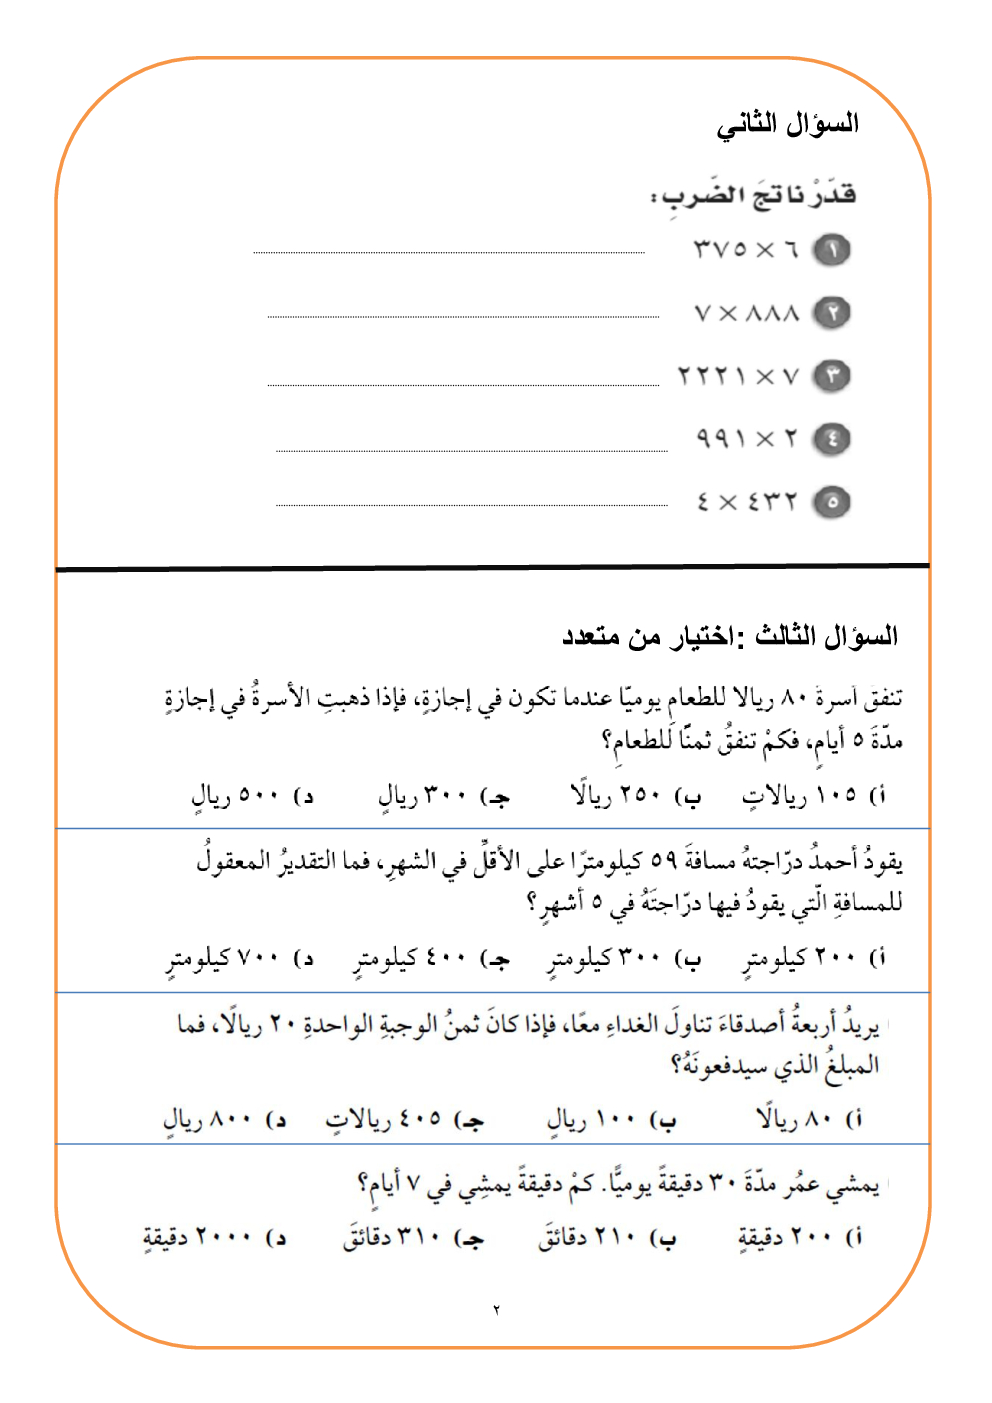 السؤال الثاني
قدّرْ ناتجَ الضَربِ:
١ ٦ × ٣٧٥
٢ ٨٨٨ × ٧
٣ ٧ × ٢٢٢١
٤ ٢ × ٩٩١
٥ ٤٣٢ × ٤
السؤال الثالث :اختيار من متعدد
تنفقُ أسرةٌ ٨٠ ريالا للطعامِ يوميّا عندما تكون في إجازةٍ، فإذا ذهبتِ الأسرةُ في إجازةٍ
مدّةَ ٥ أيامٍ، فكمْ تنفقُ ثمنًا للطعامِ؟
أ) ١٠٥ ريالاتٍ ب) ٢٥٠ ريالًا جـ) ٣٠٠ ريالٍ د) ٥٠٠ ريالٍ
يقودُ أحمدُ درّاجتهُ مسافةَ ٥٩ كيلومترًا على الأقلِّ في الشهرِ، فما التقديرُ المعقولُ
للمسافةِ الّتي يقودُ فيها درّاجتَهُ في ٥ أشهرٍ؟
أ) ٢٠٠ كيلومترٍ ب) ٣٠٠ كيلومترٍ جـ) ٤٠٠ كيلومترٍ د) ٧٠٠ كيلومترٍ
يريدُ أربعةُ أصدقاءَ تناولَ الغداءِ معًا، فإذا كانَ ثمنُ الوجبةِ الواحدةِ ٢٠ ريالًا، فما
المبلغُ الذي سيدفعونَهُ؟
أ) ٨٠ ريالًا ب) ١٠٠ ريالٍ جـ) ٤٠٥ ريالاتٍ د) ٨٠٠ ريالٍ
يمشي عمُر مدّةَ ٣٠ دقيقةً يوميًّا. كمْ دقيقةً يمشِي في ٧ أيامٍ؟
أ) ٢٠٠ دقيقةٍ ب) ٢١٠ دقائقَ جـ) ٣١٠ دقائقَ د) ٢٠٠٠ دقيقةٍ
٢